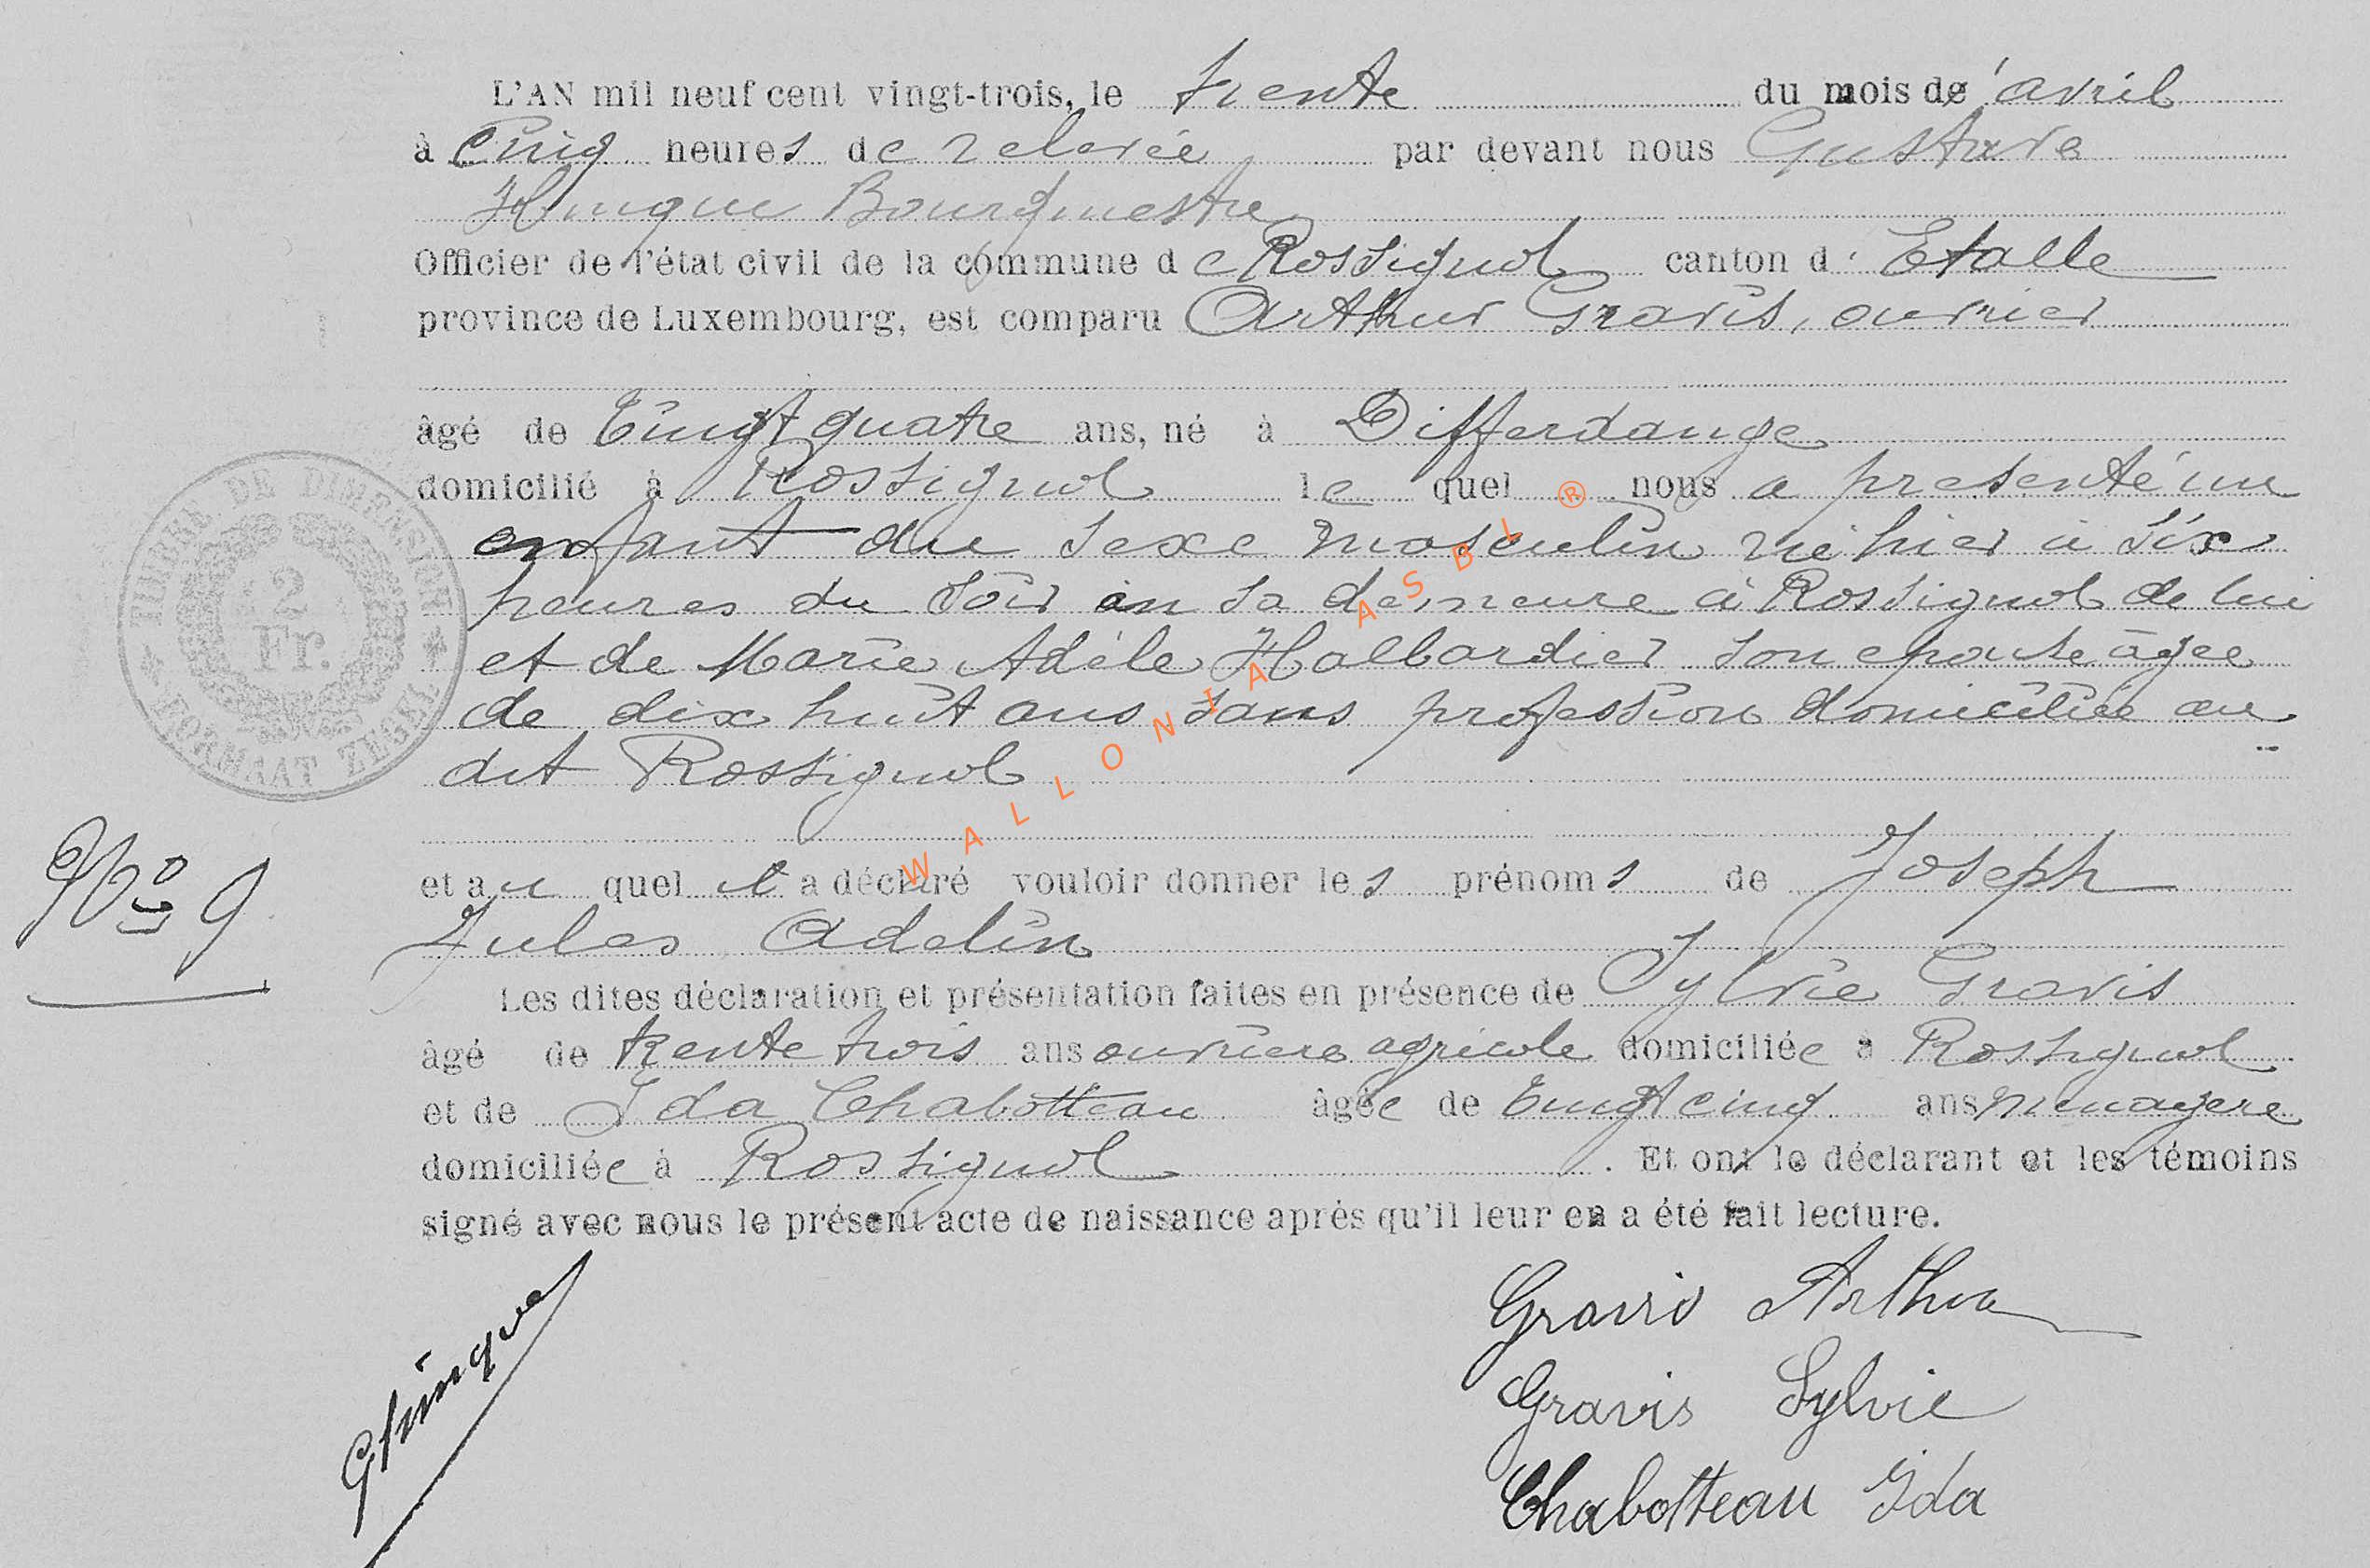 L'AN mil neuf cent vingt-trois, le trente du mois d'avril
à cinq heures de relevée par devant nous Gustave
Hinque Bourgmestre
Officier de l'état civil de la commune de Rossignol canton d'Etalle
province de Luxembourg, est comparu Arthur Gravis, ouvrier
âgé de Vingt quatre ans, né à Differdange
domicilié à Rossignol le quel nous a presenté un
enfant du sexe masculin né hier à six
heures du soir en sa demeure à Rossignol de lui
et de Marie Adèle Halbardier son epouse âgee
de dix huit ans sans profession domiciliée au
dit Rossignol
et au quel il a déclaré vouloir donner les prénoms de Joseph
Jules Adelin
Les dites déclaration et présentation faites en présence de Sylvie Gravis
âgé de trente trois ans ouvriere agricole domiciliée à Rossignol
et de Ida Chabotteau âgée de Vingt cinq ans menagere
domiciliée à Rossignol. Et ont le déclarant et les témoins
signé avec nous le présent acte de naissance après qu'il leur en a été fait lecture.
Gravis Arthur
Gravis Sylvie
Chabotteau Ida
GHinque
No 9
TIMBRE DE DIMENSION
2
Fr.
FORMAAT ZEGEL
WALLONIA ASBL ®